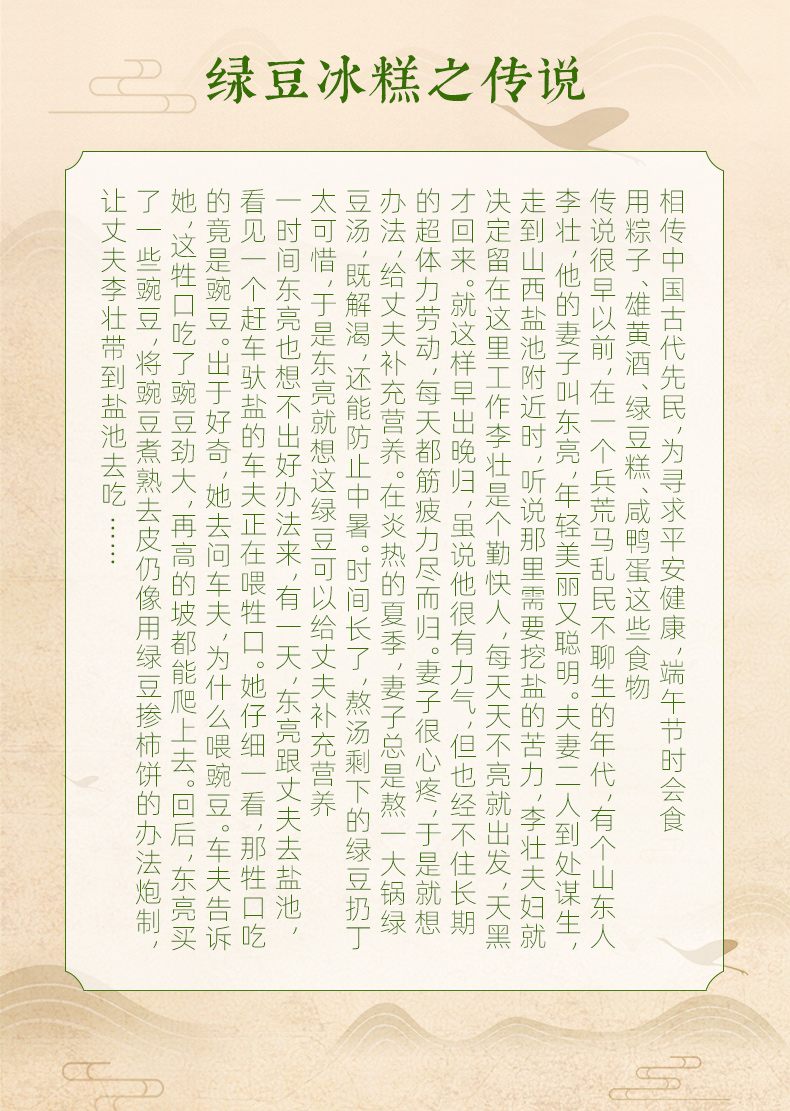 绿豆冰糕之传说
相传中国古代先民，为寻求平安健康，端午节时会食
用粽子、雄黄酒、绿豆糕、咸鸭蛋这些食物
传说很早以前，在一个兵荒马乱民不聊生的年代，有个山东人
李壮，他的妻子叫东亮，年轻美丽又聪明。夫妻二人到处谋生，
走到山西盐池附近时，听说那里需要挖盐的苦力，李壮夫妇就
决定留在这里工作李壮是个勤快人，每天天不亮就出发，天黑
才回来。就这样早出晚归，虽说他很有力气，但也经不住长期
的超体力劳动，每天都筋疲力尽而归。妻子很心疼，于是就想
办法，给丈夫补充营养。在炎热的夏季，妻子总是熬一大锅绿
豆汤，既解渴，还能防止中暑。时间长了，熬汤剩下的绿豆扔丁
太可惜，于是东亮就想这绿豆可以给丈夫补充营养
一时间东亮也想不出好办法来，有一天，东亮跟丈夫去盐池，
看见一个赶车驮盐的车夫正在喂牲口。她仔细一看，那牲口吃
的竟是豌豆。出于好奇，她去问车夫，为什么喂豌豆。车夫告诉
她，这牲口吃了豌豆劲大，再高的坡都能爬上去。回后，东亮买
了一些豌豆，将豌豆煮熟去皮仍像用绿豆掺柿饼的办法炮制，
让丈夫李壮带到盐池去吃……